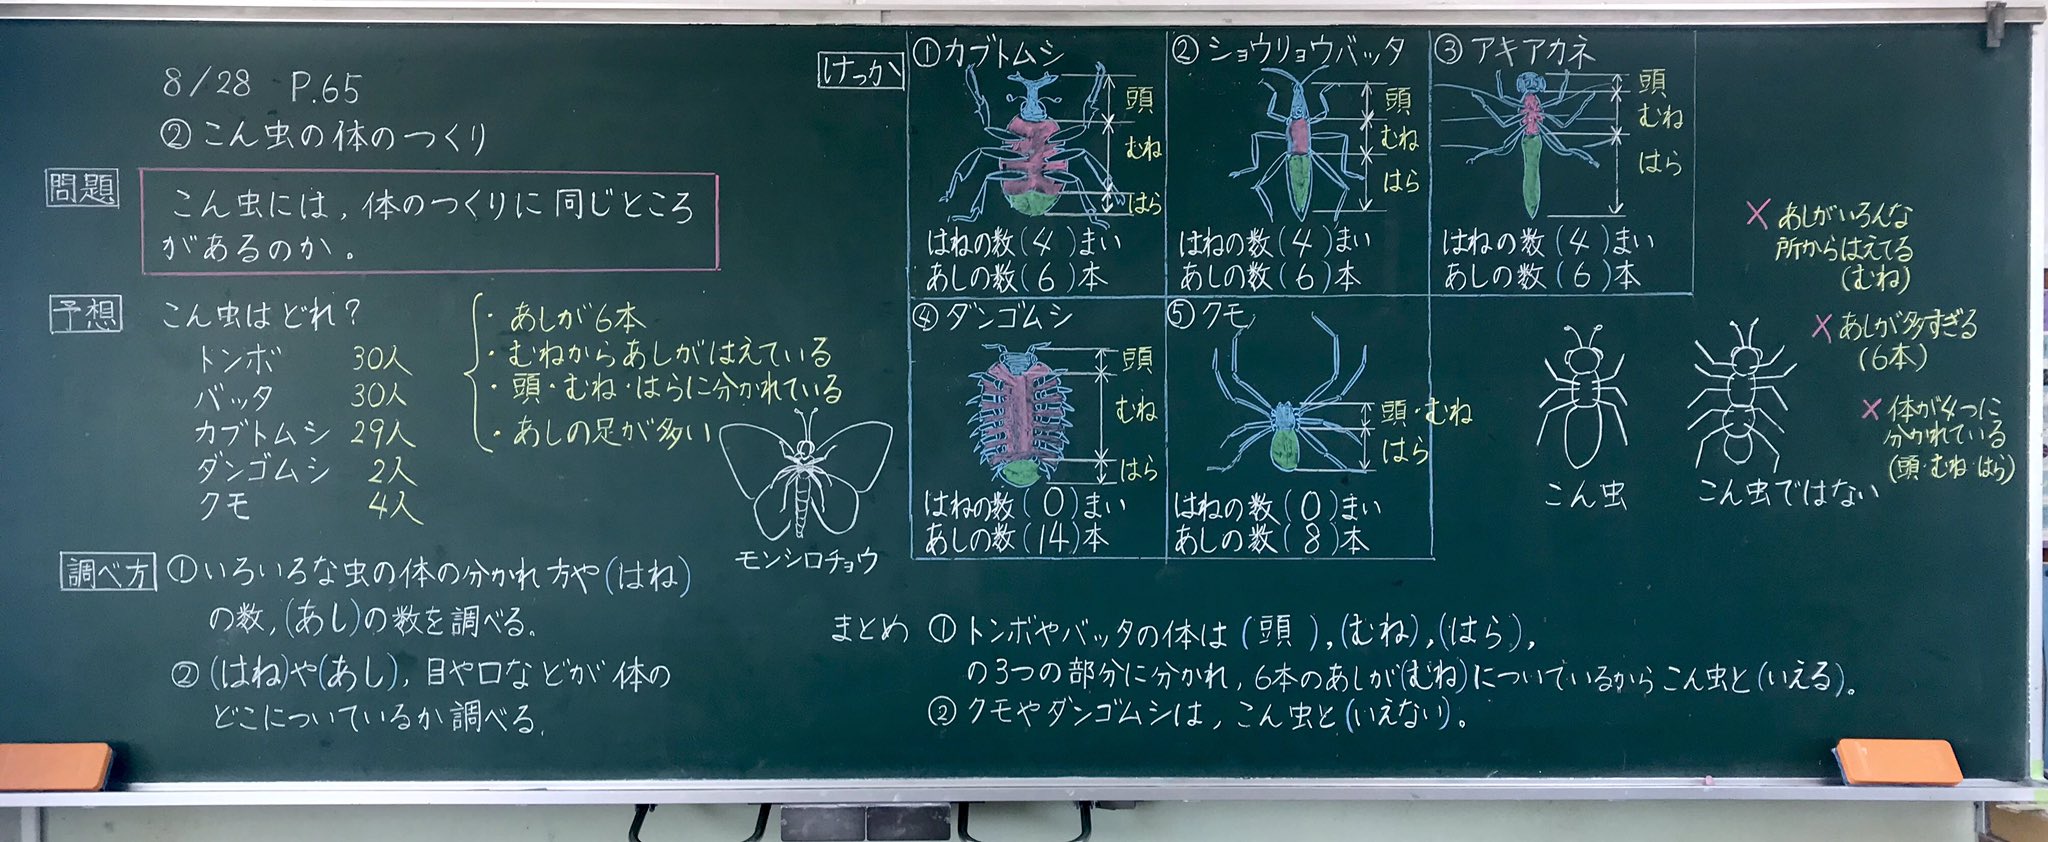 8/28 P.65
②こん虫の体のつくり
問題
こん虫には、体のつくりに同じところ
があるのか。
予想 こん虫はどれ?
トンボ 30人
バッタ 30人
カブトムシ 29人
ダンゴムシ 2人
クモ 4人
・あしが6本
・むねからあしがはえている
・頭・むね・はらに分かれている
・あしの足が多い
モンシロチョウ
調べ方 ①いろいろな虫の体の分かれ方や(はね)
の数,(あし)の数を調べる。
②(はね)や(あし),目や口などが体の
どこについているか調べる。
けっか
①カブトムシ
頭
むね
はら
はねの数(4)まい
あしの数(6)本
②ショウリョウバッタ
頭
むね
はら
はねの数(4)まい
あしの数(6)本
③アキアカネ
頭
むね
はら
はねの数(4)まい
あしの数(6)本
④ダンゴムシ
頭
むね
はら
はねの数(0)まい
あしの数(14)本
⑤クモ
頭・むね
はら
はねの数(0)まい
あしの数(8)本
×あしがいろんな
所からはえてる
(むね)
×あしが多すぎる
(6本)
×体が4つに
分かれている
(頭・むね・はら)
こん虫
こん虫ではない
まとめ ①トンボやバッタの体は(頭),(むね),(はら),
の3つの部分に分かれ,6本のあしが(むね)についているからこん虫と(いえる)。
②クモやダンゴムシは,こん虫と(いえない)。